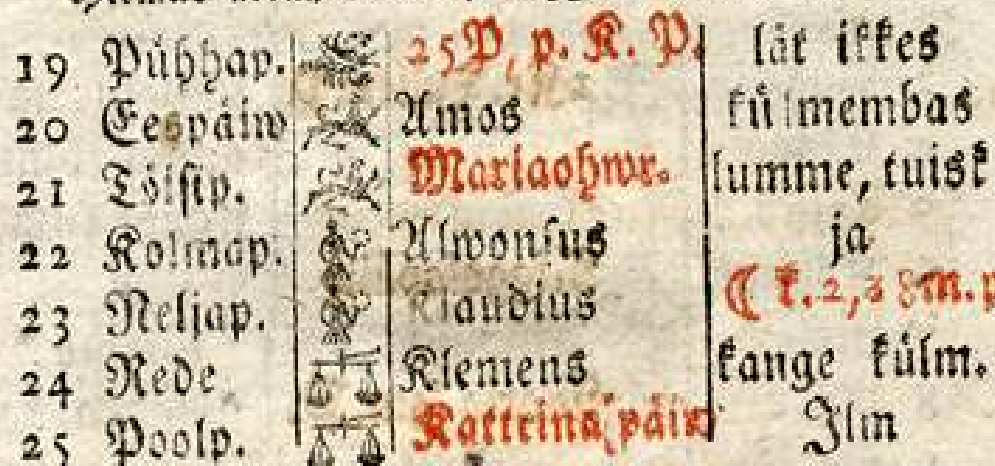 19 Pühhap. 25 P, p. K. P. lät ikkes
20 Eespäiw Amos külmembas
21 Töisip. Mariaohwr. lumme, tuisk
22 Kolmap. Alwonsus ja
23 Neljap. Klaudius ☾ k. 2, 38 m. p
24 Rede Klemens kange külm.
25 Poolp. Kattrina päiw Ilm